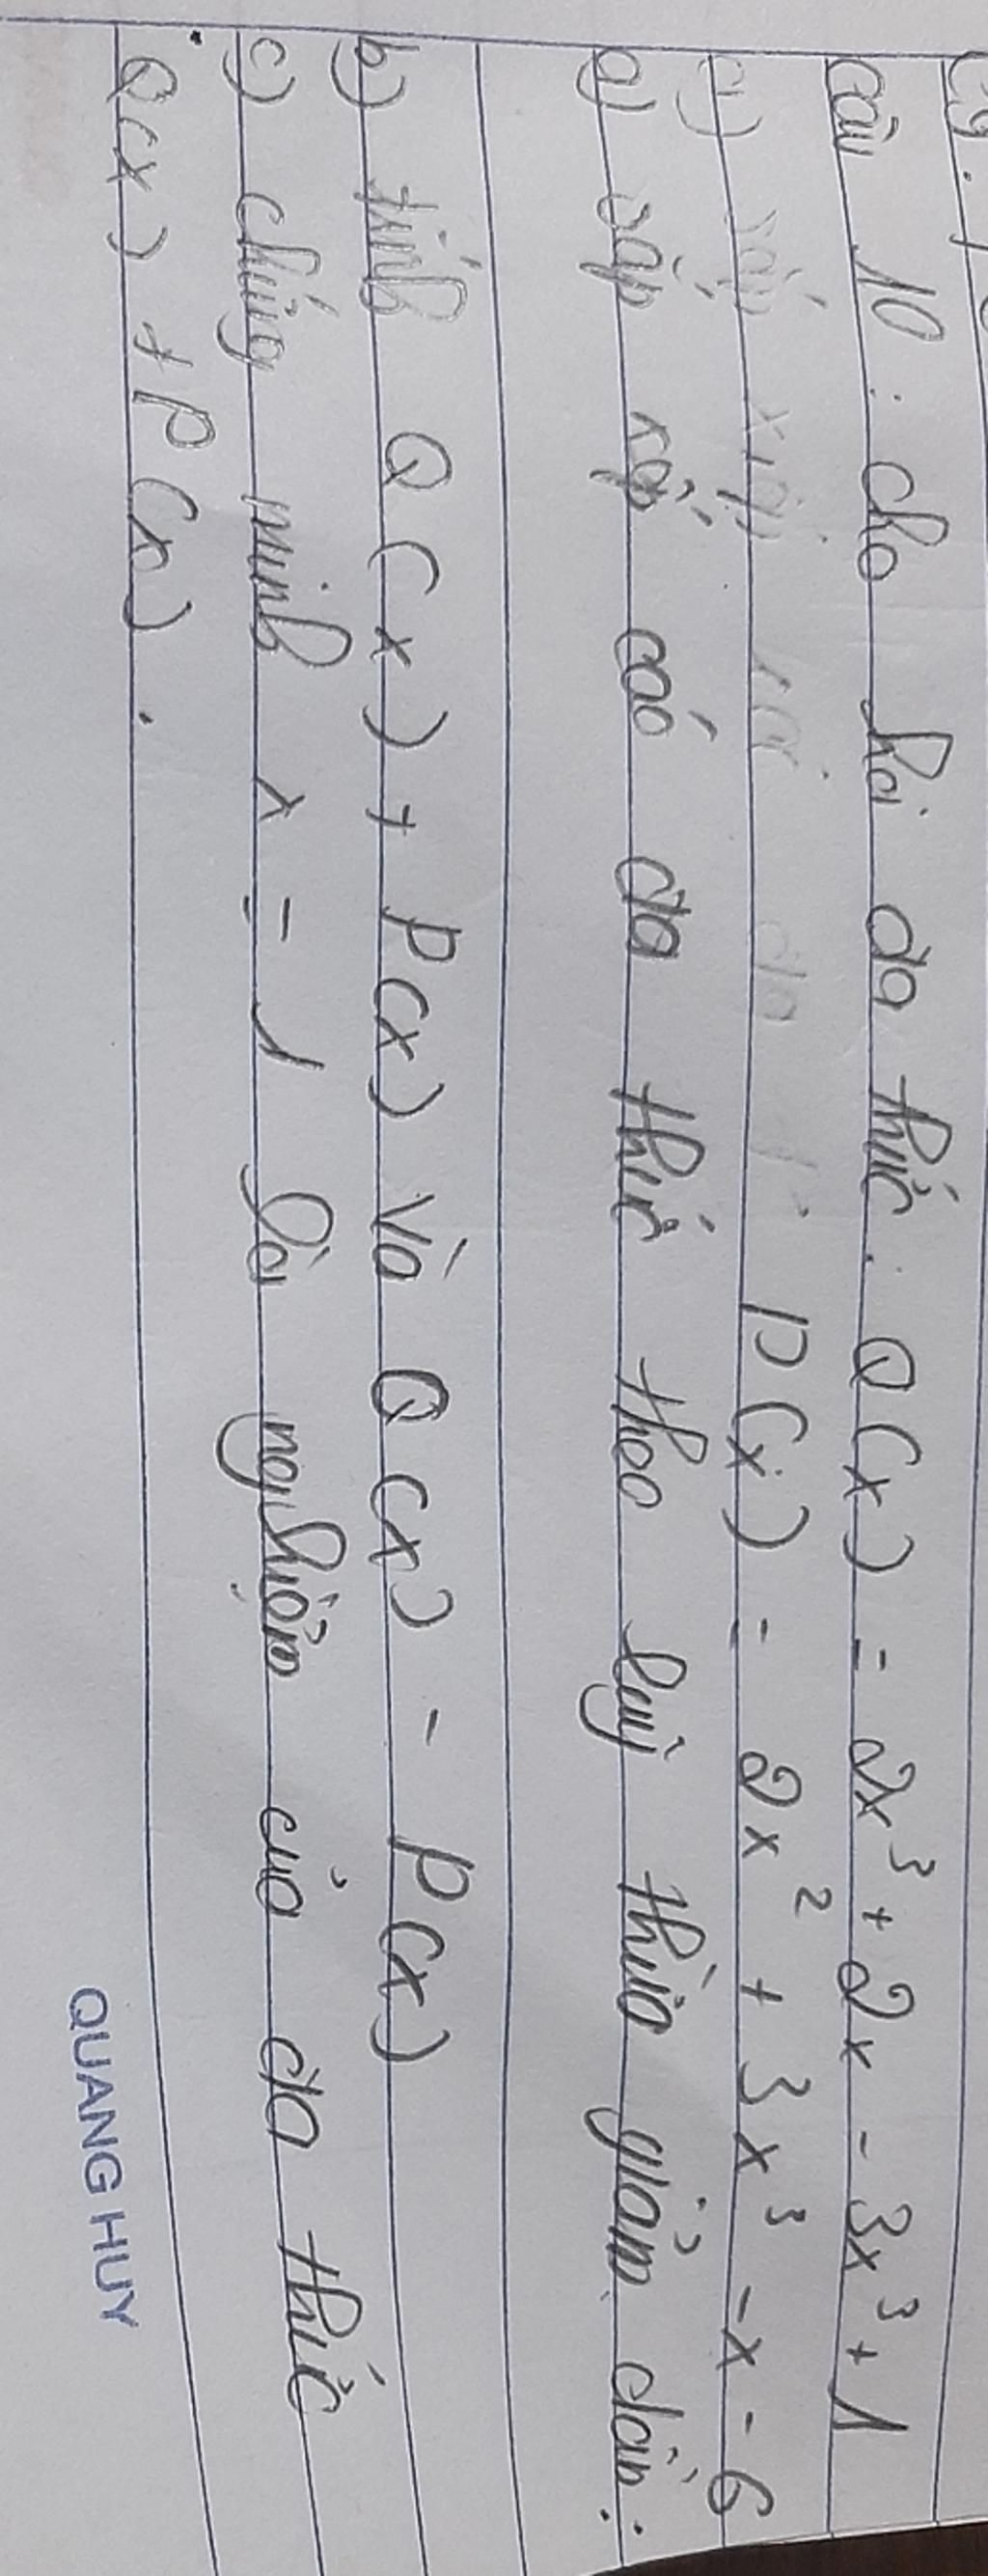 câu 10 : cho hai đa thức : Q(x) = 2x³ + 2x - 3x³ + 1
P(x) = 2x² + 3x³ - x - 6
a) sắp xếp các đa thức theo luỹ thừa giảm dần :
b) tính Q(x) + P(x) và Q(x) - P(x)
c) chứng minh x = 1 là nghiệm của đa thức
Q(x) + P(x) .
QUANG HUY